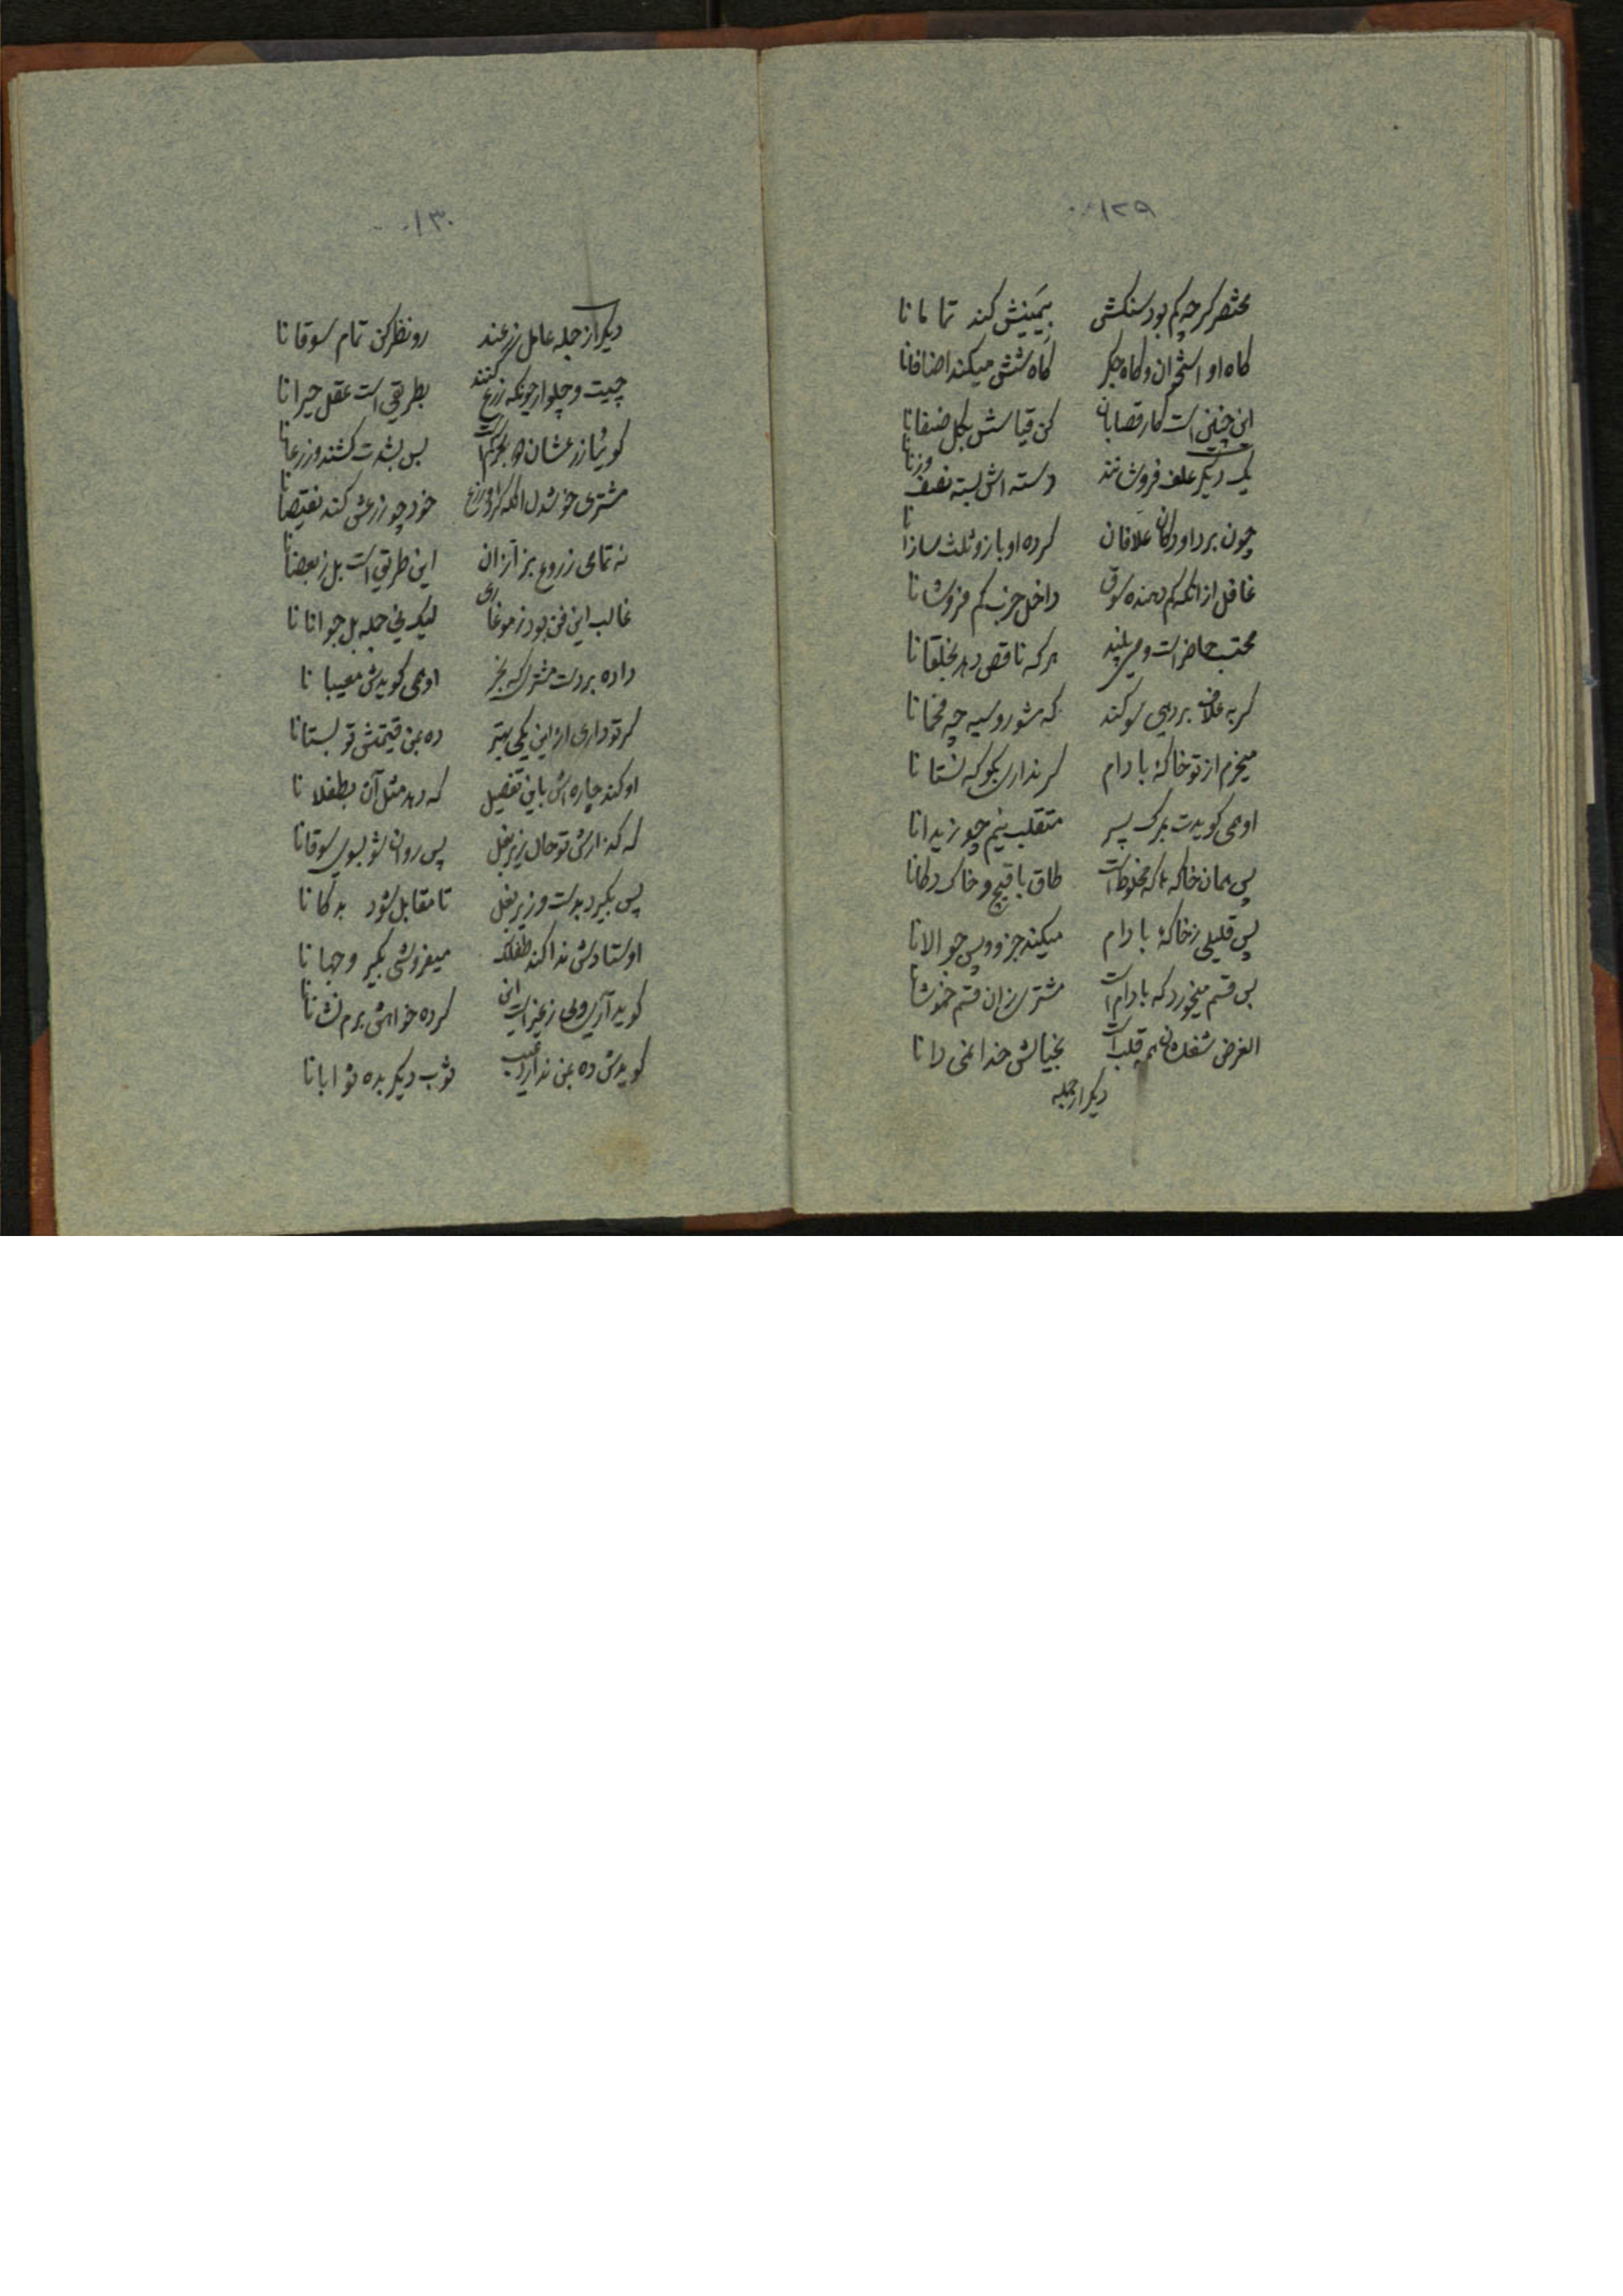 ۱۲۹
مختصر گر چه کم بود سنگش بیمینش کند تمامانا
گاه او استخوان و گاه جگر گاه شش میکند اضافانا
این چنین است کار قصابان کن قیاسش بکل صنفانا
یک دیگر علف فروشانند دسته اش بسته نصف وزنانا
چون برد او دکان علافان کرده او باز و ثلث سازانا
غافل از انکه کم دهنده سوق داخل حزب کم فروشانا
محتسب حاضر است و می بیند هر که ناقص دهد بخلقانا
گر به علاف بر دهی سوگند که شو رو سیه چه فحمانا
میخرم از تو خاکهٔ بادام گر نداری بگو که نستانا
او همی گویدت بمرگ پسر متقلب نیم چو زیدانا
پس همان خاکه که مخلوط است طاق باقیچ و خاک دکانا
پس قلیلی ز خاکهٔ بادام میکند جزو و پس جوالانا
بس قسم میخورد که بادام است مشتری زان قسم خموشانا
الغرض شغلشان همه قلب است بخیالش خدا نمی دانا
دیگر از جمله
۱۳۰
دیگر از جمله عامل زرعند رو نظر کن تمام سوقانا
چیت و چلوار چونکه زرع کنند بطریقی است عقل حیرانا
گوئیا زرعشان بس بشدت کشند و زرعانا
مشتری خوشدل انکه کرد و زرع خود چو زرعش کند نقیصانا
نه تمامی زروع بزازان این طریق است بل ز بعضانا
غالب این فن بود ز موغاری لیک نی جمله بل جوانانا
داده بر دست مشتری که بخر او همی گویدش معیبانا
گر تو داری از این یکی بهتر ده بمن قیمتش تو بستانا
او کند چاره اش باین تفصیل که دهد مثل آن بطفلانا
که گذارش تو حال زیر بغل پس روان شو بسوی سوقانا
پس بگیرد بدست و زیر بغل تا مقابل شود بدکانا
اوستادش ندا کند طفلک میفروشی بگیر وجهانا
گوید آری ولی ز غیر است این کرده خواهش برم نشانانا
گویدش ده بمن ندارد عیب ثوب دیگر بده ثوابانا